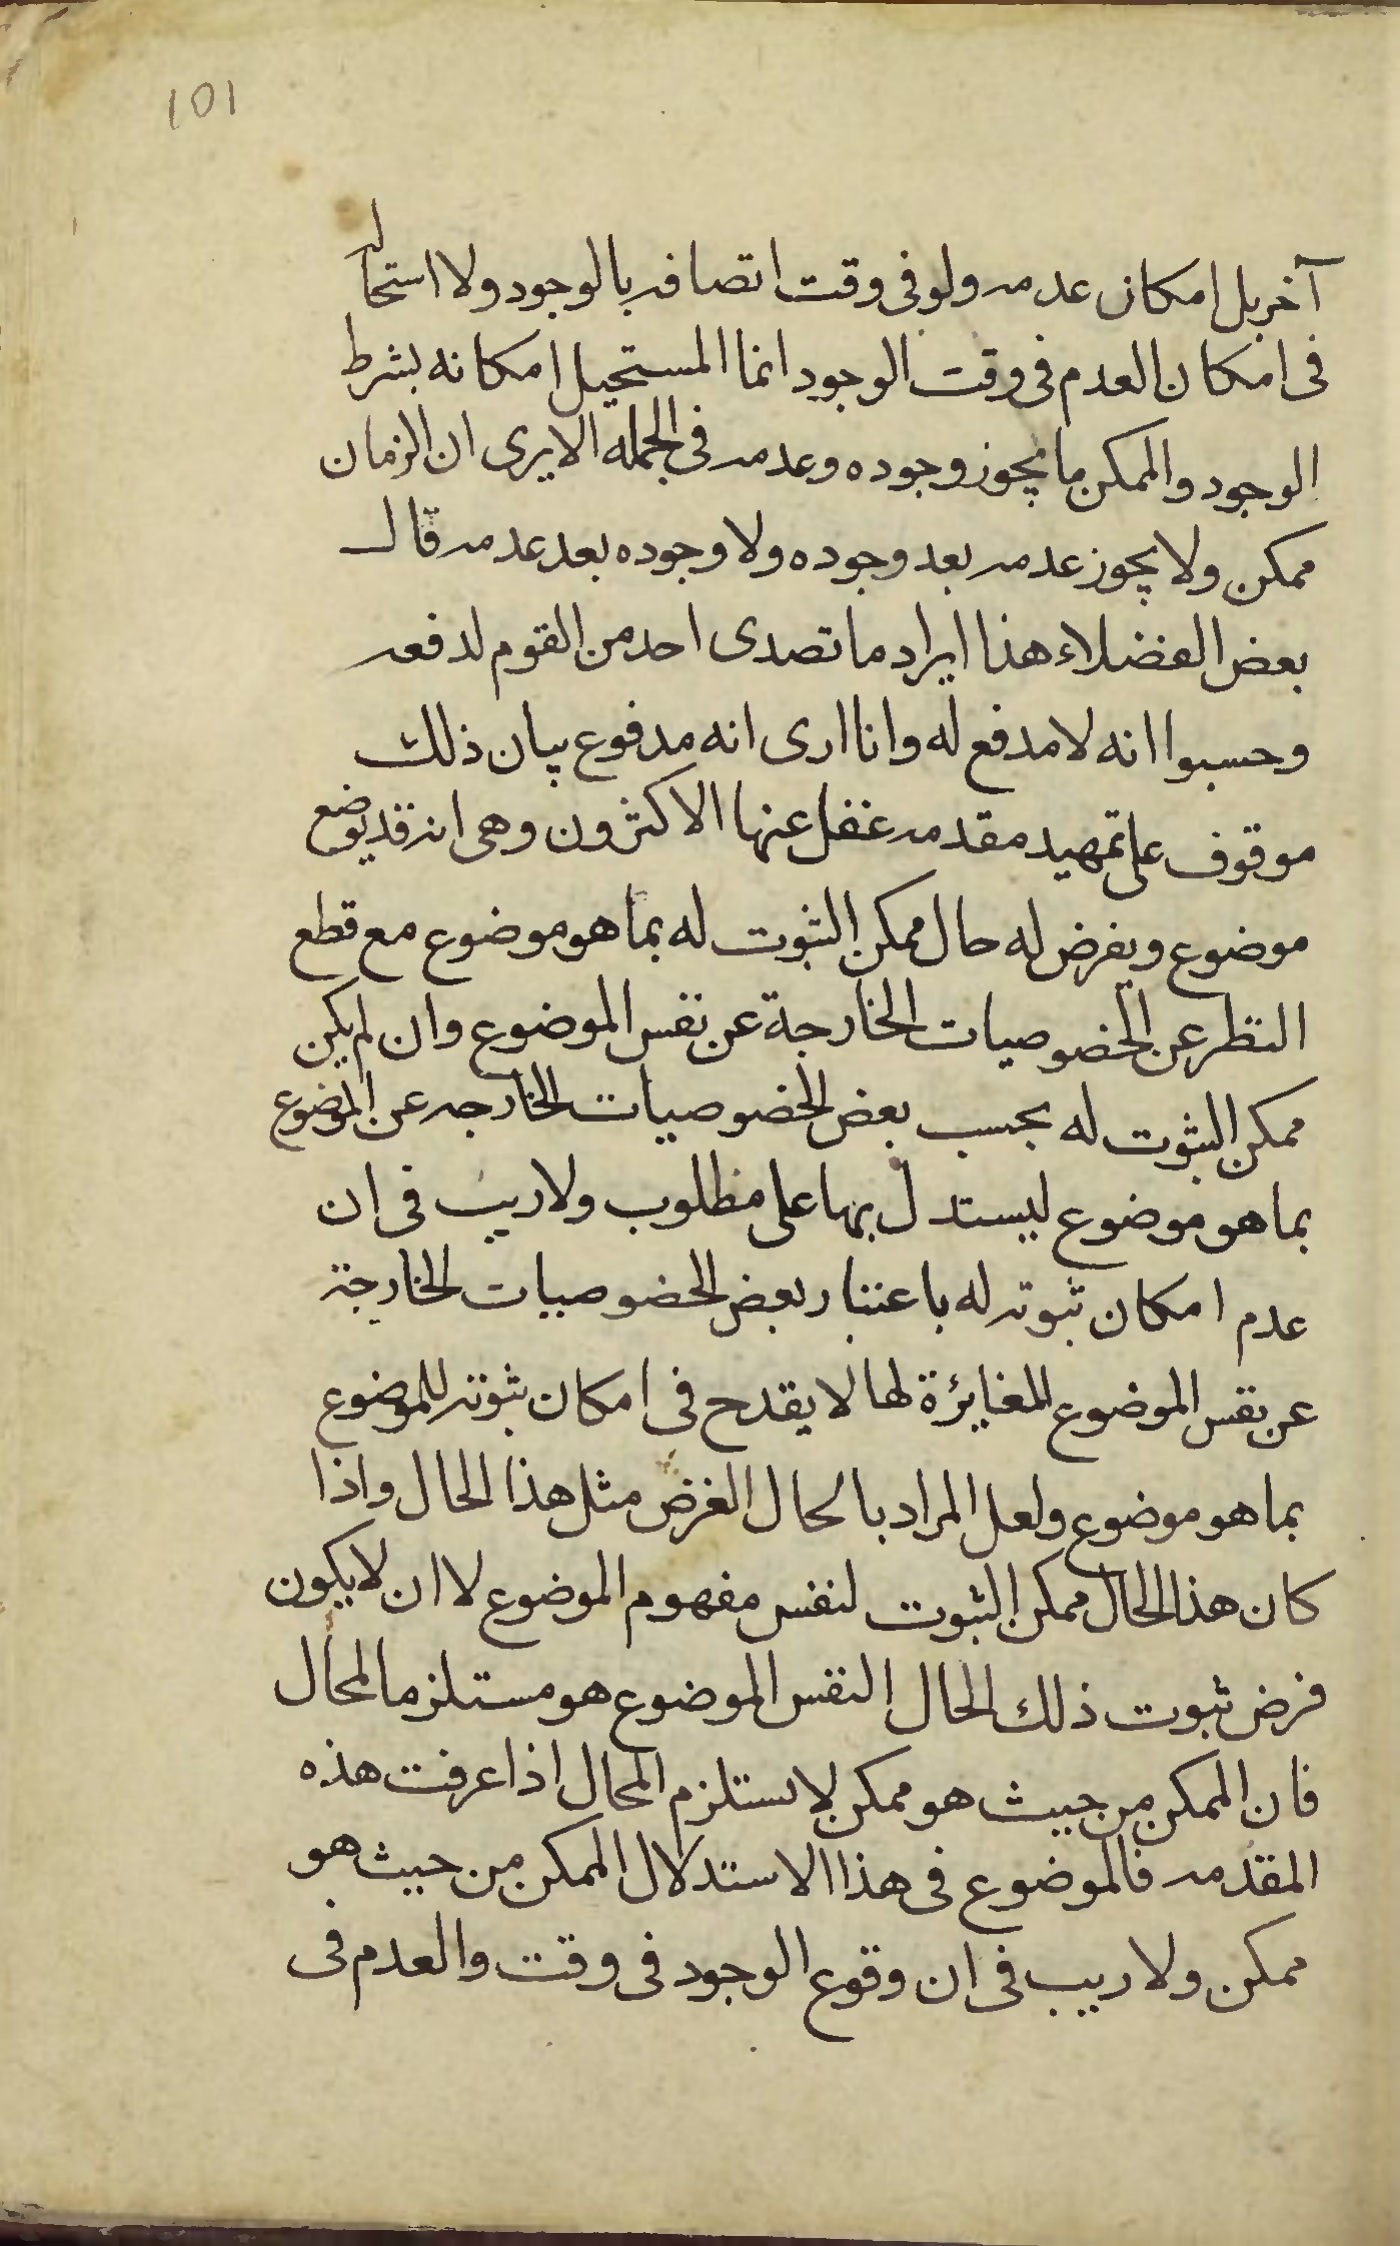 101
آخر بل امكان عدمه ولو فى وقت اتصافه بالوجود ولا استحاله
فى امكان العدم فى وقت الوجود انما المستحيل امكانه بشرط
الوجود والممكن ما يجوز وجوده وعدمه فى الجمله الا يرى ان الزمان
ممكن ولا يجوز عدمه بعد وجوده ولا وجوده بعد عدمه قال
بعض الفضلاء هذا ايراد ما تصدى احد من القوم لدفعه
وحسبوا انه لا مدفع له وانا ارى انه مدفوع بيان ذلك
موقوف على تمهيد مقدمه غفل عنها الاكثرون وهى انه قد يوضع
موضوع ويفرض له حال ممكن الثبوت له بما هو موضوع مع قطع
النظر عن الخصوصيات الخارجة عن نفس الموضوع وان لم يكن
ممكن الثبوت له بحسب بعض الخصوصيات الخارجه عن الموضوع
بما هو موضوع ليستدل بها على مطلوب ولا ريب فى ان
عدم امكان ثبوته له باعتبار بعض الخصوصيات الخارجة
عن نفس الموضوع المغايرة لها لا يقدح فى امكان ثبوته للموضوع
بما هو موضوع ولعل المراد بالحال الغرض مثل هذا الحال واذا
كان هذا الحال ممكن الثبوت لنفس مفهوم الموضوع لا ان لا يكون
فرض ثبوت ذلك الحال النفس الموضوع هو مستلزما المحال
فان الممكن من حيث هو ممكن لا يستلزم المحال اذا عرفت هذه
المقدمه فالموضوع فى هذا الاستدلال الممكن من حيث هو
ممكن ولا ريب فى ان وقوع الوجود فى وقت والعدم فى